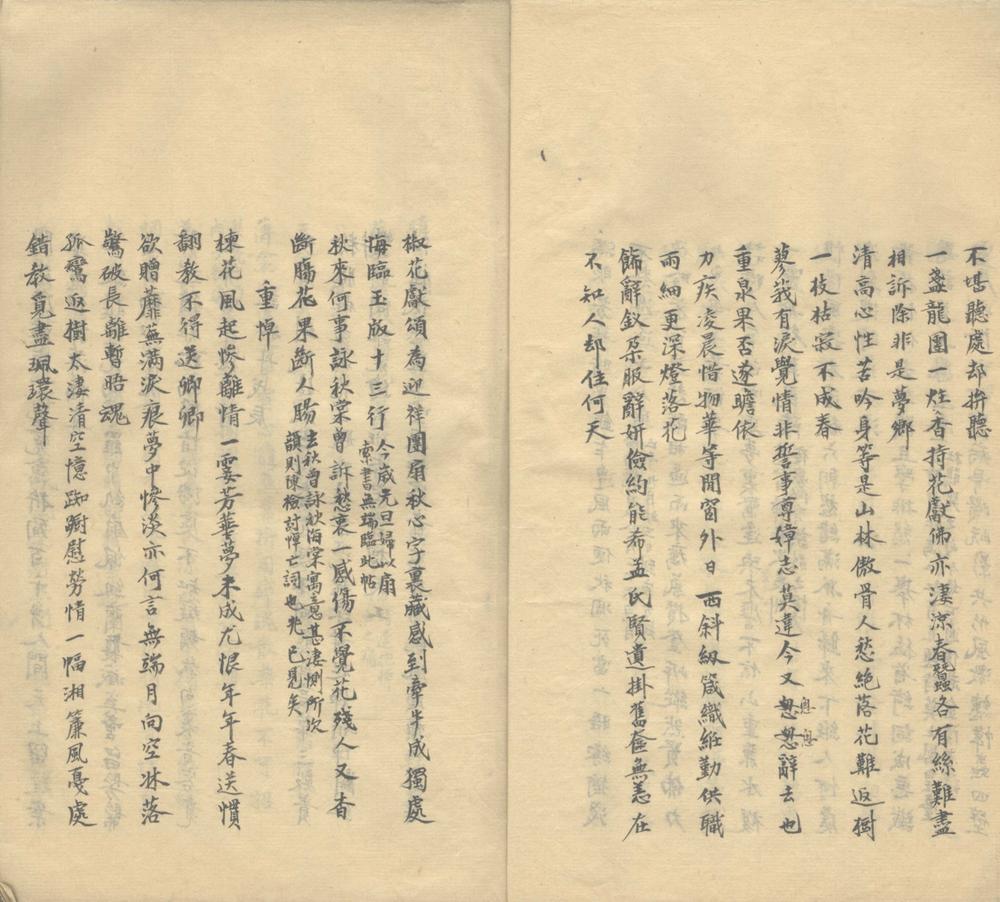 不堪聽處却拚聽
一盞龍團一炷香持花獻佛亦淒涼春蠶各有絲難盡
相訴除非是夢鄉
清高心性苦吟身等是山林傲骨人愁絕落花難返樹
一枝枯寂不成春
蓼莪有淚覺情非誓事尊嫜志莫違今又怱怱辭去也
恩恩
重泉果否遂瞻依
力疾凌晨惜物華等閒窗外日西斜紉箴織絍勤供職
雨細更深燈落花
飾辭釵朶服辭妍儉約能希孟氏賢遺掛舊奩無恙在
不知人却住何天
椒花獻頌為迎祥團扇秋心字裏藏感到牽牛成獨處
悔臨玉版十三行
今歲元旦婦以扇
索書無端臨此帖
秋來何事詠秋棠曾訴愁衷一感傷不覺花殘人又香
斷腸花果斷人腸
去秋曾詠秋海棠寓意甚淒惻所次
韻則陳檢討悼亡詞也兆已見矣
重悼
楝花風起慘離情一霎芳華夢未成尤恨年年春送慣
翻教不得送卿卿
欲贈蘼蕪滿淚痕夢中慘淡亦何言無端月向空牀落
驚破長離暫晤魂
孤鸞返樹太淒清空憶踟躕慰勞情一幅湘簾風戞處
錯教覓盡珮環聲